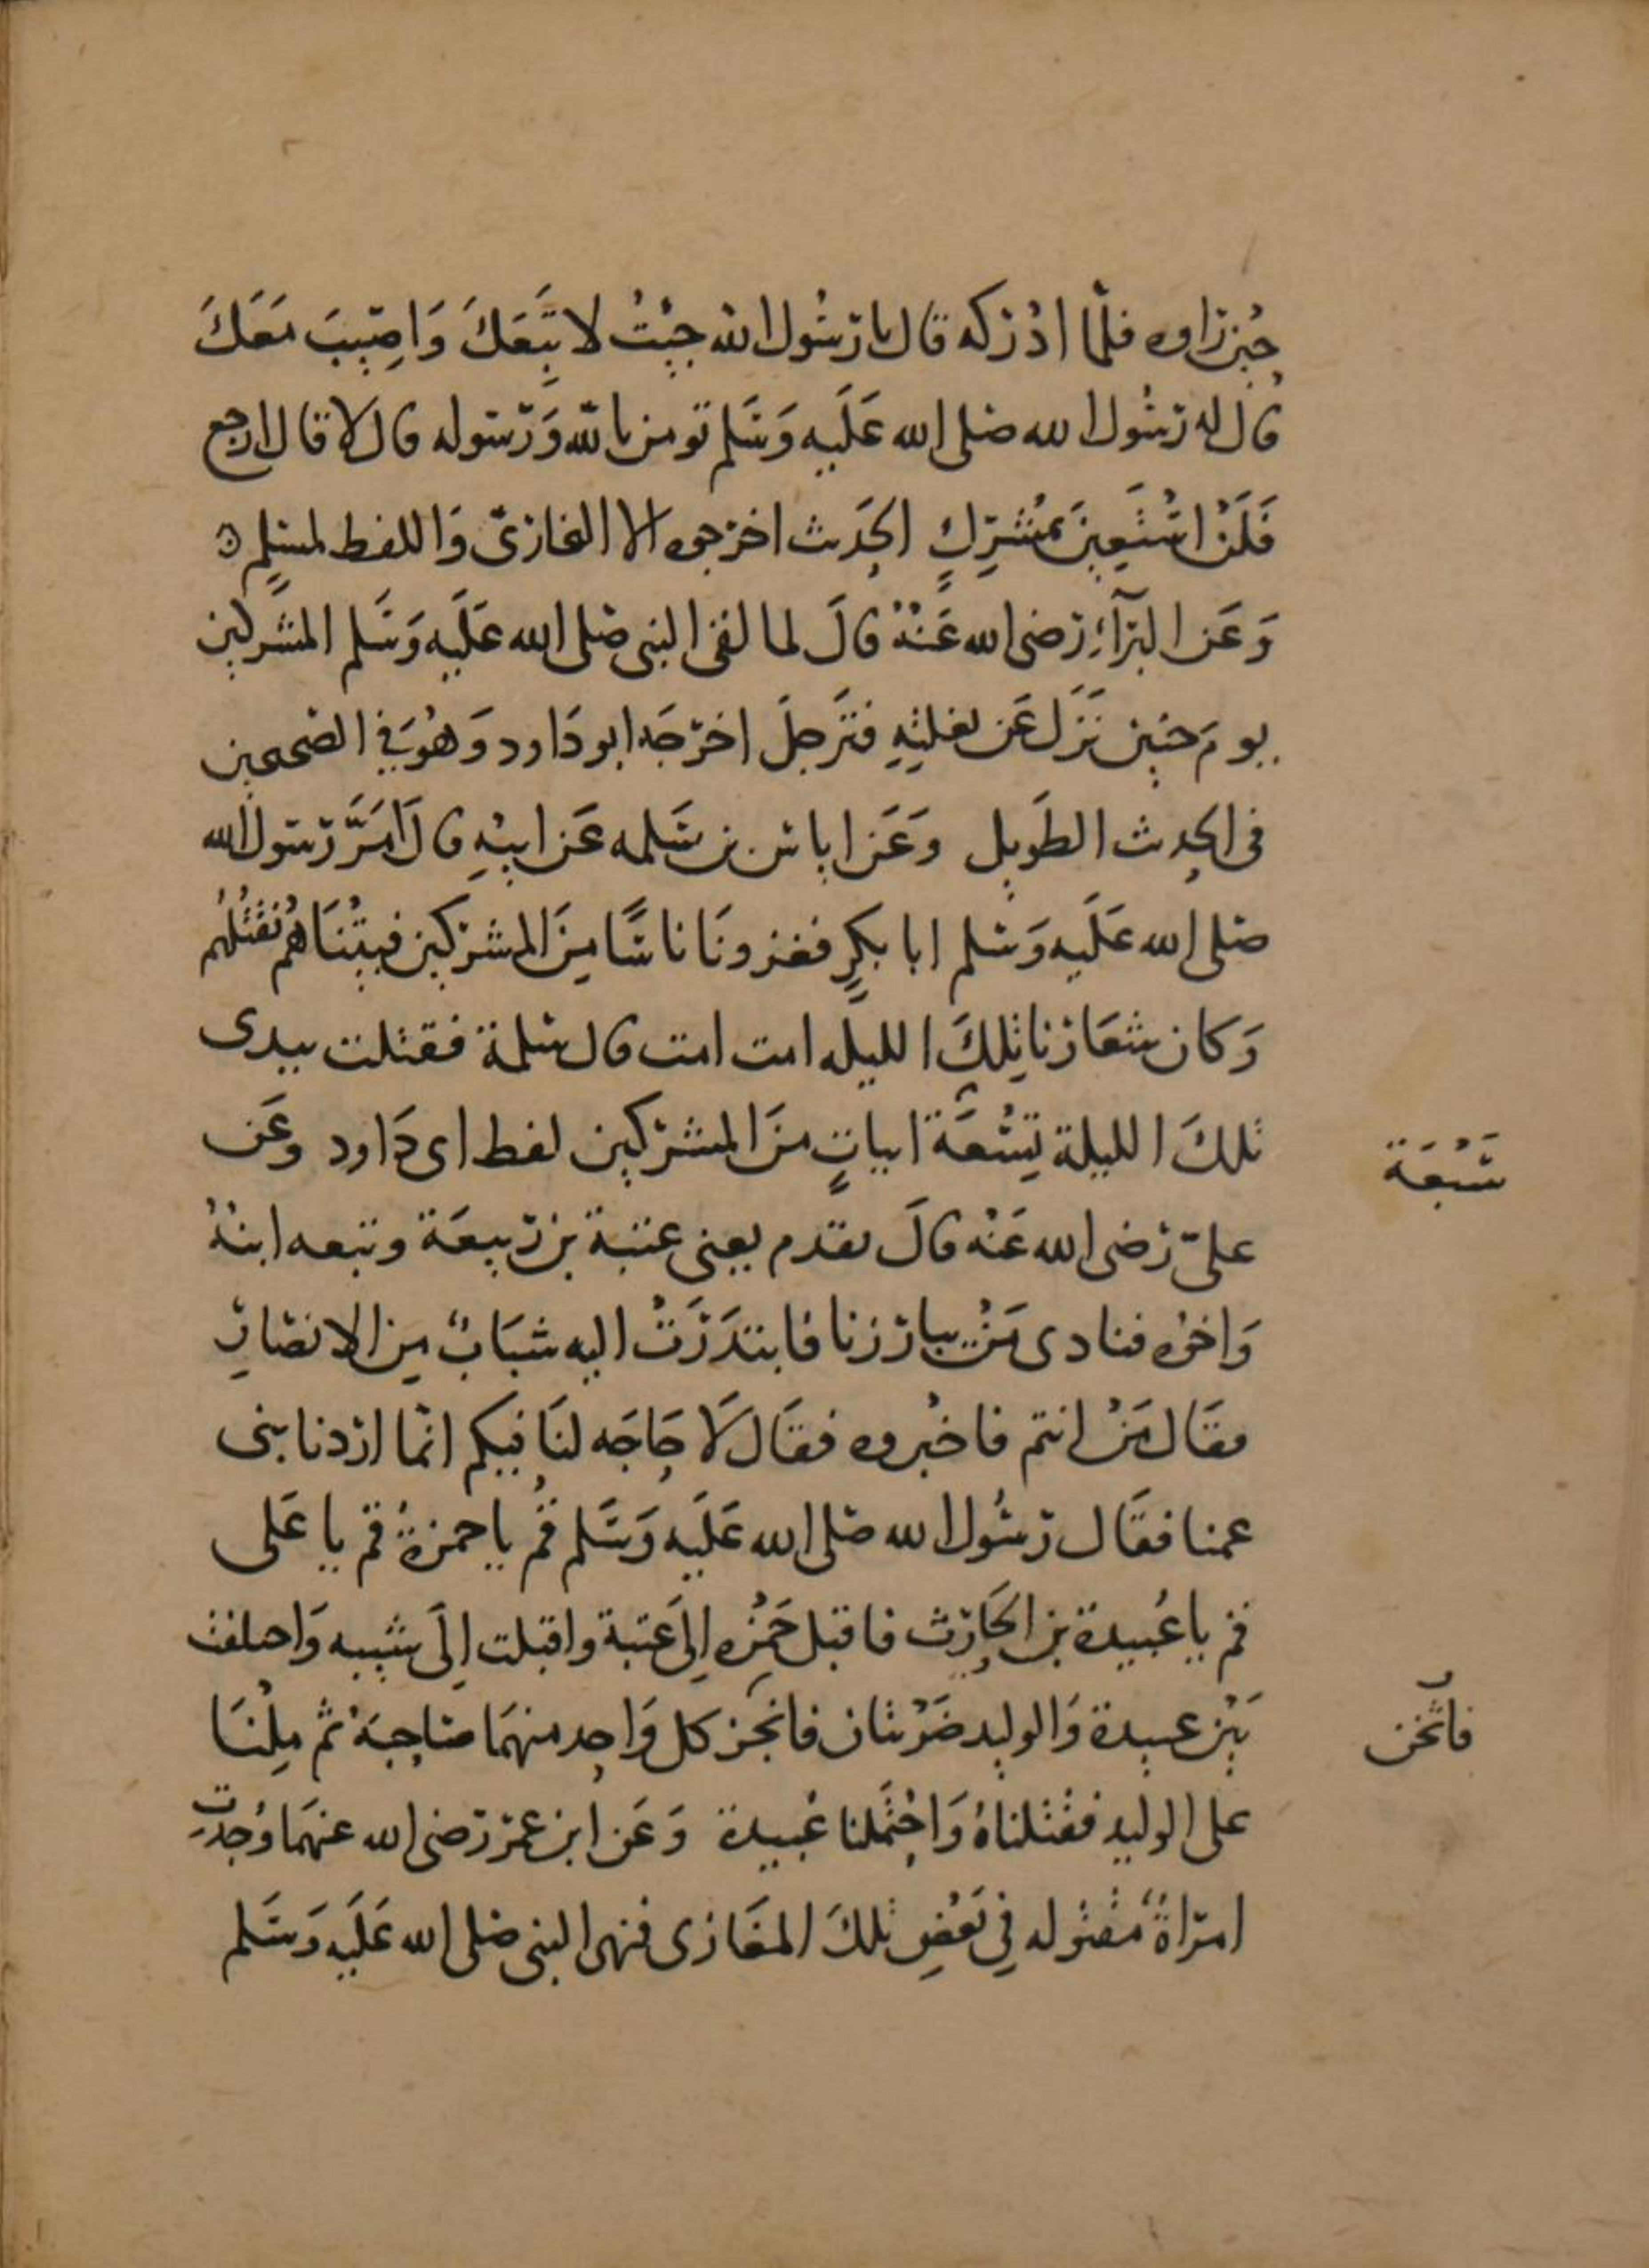 حين راوه فلمّا ادركه قال يا رسُول الله جيْتُ لاتّبعَكَ وَاصِيبَ مَعَكَ
قال له رسُول الله صلى الله عَلَيه وَسَلم تومن بالله وَرَسوله قال لا قال ارجع
فَلَنْ اسْتَعِينَ بمُشْرِكٍ الحَديث اخرجوه الا البخاريّ وَاللفظ لمسلمٍ
وَعَن البَرَآءِ رَضى الله عَنْهُ قالَ لما لقى النبى صلى الله عَلَيه وَسَلم المشركين
يومَ حنين نَزَل عَن بغلتِهِ فتَرجلَ اخرَجَه ابو دَاود وَهُوَ فِي الصحيحين
فى الحديث الطَويل وَعَن اياس بن سَلمه عَن ابيْهِ قال اَمَّرَ رسول الله
صلى الله عَلَيه وَسلم ابا بكرٍ فغزونَا ناسًا مِنَ المشركين فبيّتْنَاهُم نَقْتُلُهُم
وَكان شعَارنا تِلكَ الليله امت امت قال سلمة فقتلت بيدى
تلكَ الليلة تِسْعَة ابياتٍ منَ المشركين لفظ ابى دَاود وعَن
علىّ رَضى الله عَنْه قالَ تقدم يعنى عتبة بن ربيعَة وتبعه ابنهُ
وَاخوُه فنادى مَنْ يبارزنا فابتدَرَتْ اليه شبَابٌ مِن الانصَارِ
فقَال مَنْ انتم فاخبْروه فقَال لَا حَاجَه لنَا فيكم انّما اردنا بنى
عمنا فقَال رسُول الله صَلى الله عَلَيه وَسَلم قُم ياحمزةُ قم يا عَلى
قم يا عُبيدة بن الحَارِث فاقبل حَمْزه إلىَ عتبة واقبلت إلَى شيبه وَاختلف
بَيْن عبيدة وَالوليد ضَرْبتان فاثخن كل وَاحِد منهمَا صَاحِبَهُ ثم مِلْنَا
على الوليد فقتلناهُ وَاحْتَملنا عُبيدة وَعَن ابن عمَر رَضى الله عنهمَا وُجِدَت
امرَاةٌ مقتُوله فِي بَعْضِ تلكَ المغَازى فنهى النبى صلى الله عَلَيه وَسَلم
سَبْعَة
فاثخن